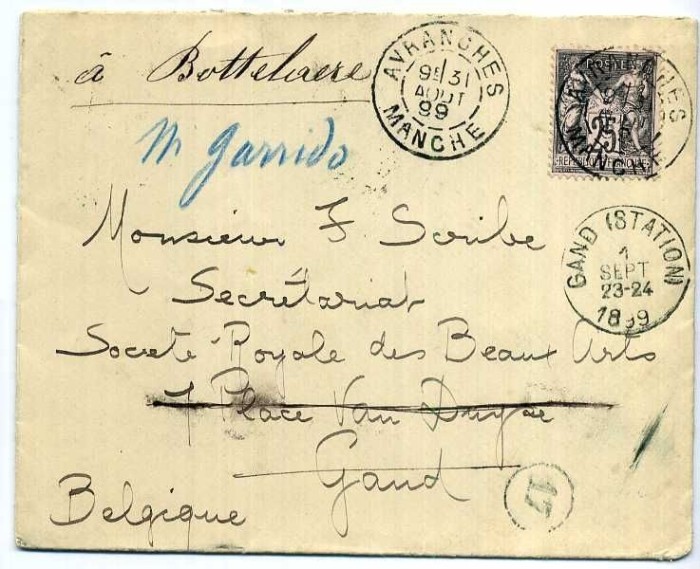 à Bottelaere
AVRANCHES
9E 31
AOUT
99
MANCHE
POSTES
25
M Garrido
Monsieur F Scribe
Secrétariat
Societe Royale des Beaux Arts
7 Place Van Duyse
Gand
Belgique
GAND (STATION)
1
SEPT
23-24
1899
17